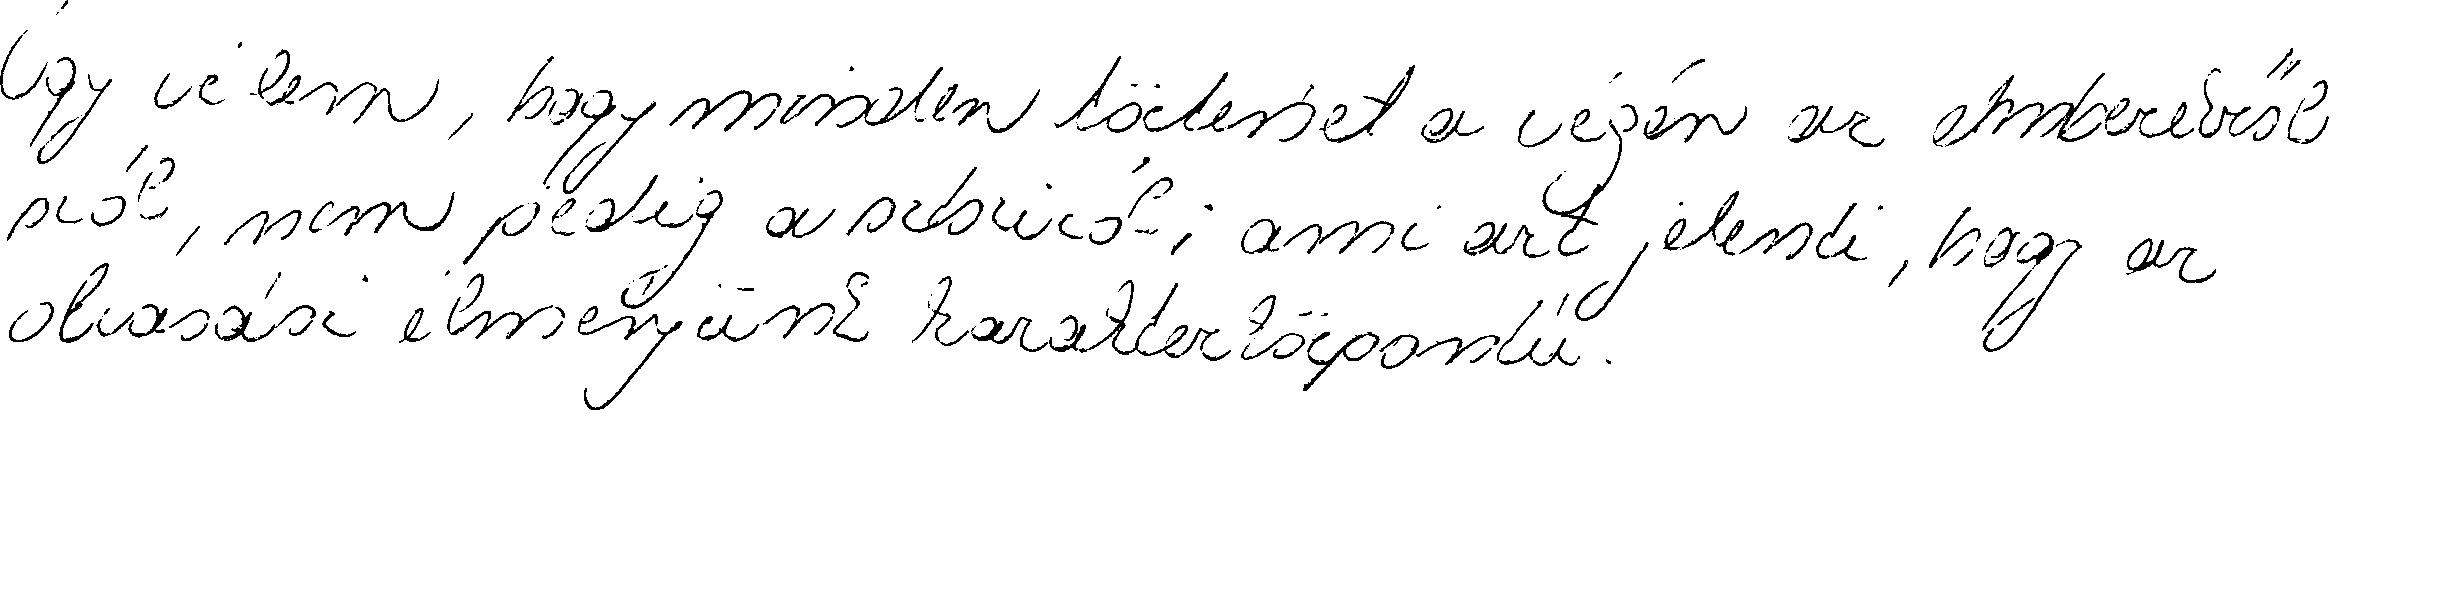 Úgy vélem, hogy minden történet a végén az emberekről
szól, nem pedig a sztoriról; ami azt jelenti, hogy az
olvasási élményünk karakterközpontú.